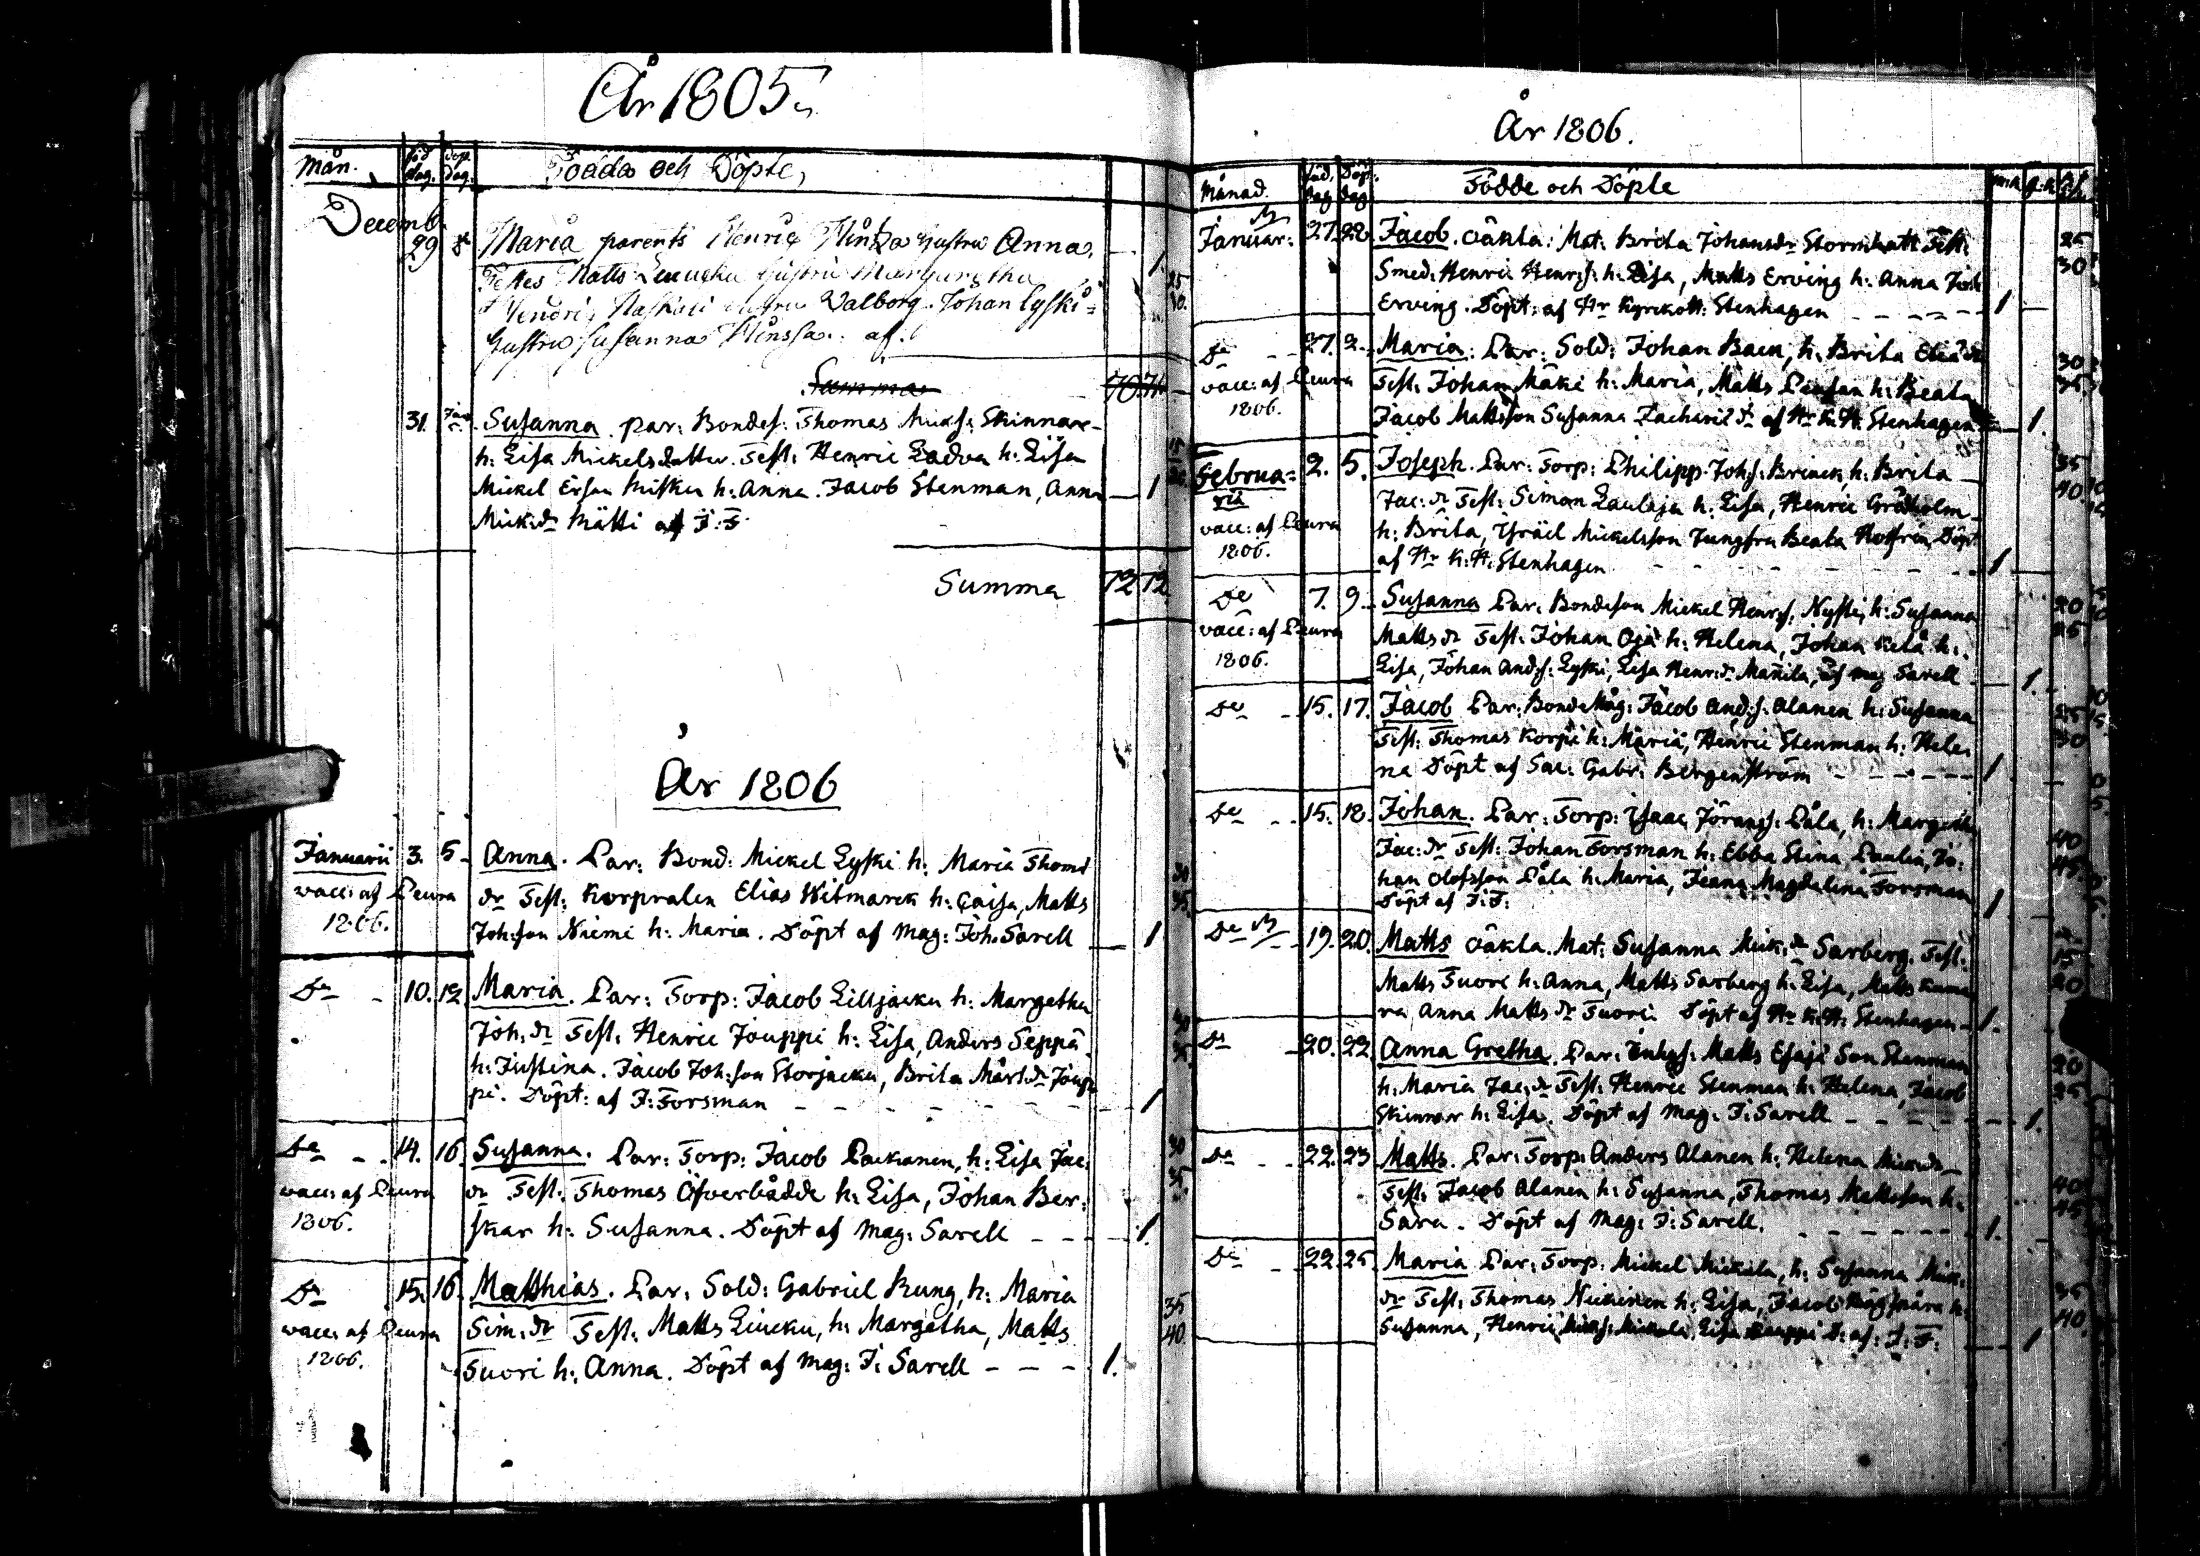 År 1805.
Mån.
föd. dag.
döp. dag.
Födda och Döpte,
Decemb.
29
Maria parents Henric Hintza hustru Anna,
Testes Matts Liuucku hustru Margaretha
Hendric Naskali hustru Valborg. Johan Lyski
hustru Susanna Hinssa. af.
1
25
30.
Summa
31.
Susanna. par: Bondes: Thomas Micks: Skinnar
h: Lisa Mickelsdotter. Test: Henric Ladva h: Lisa
Mickel Ersson h: Anna. Jacob Stenman, Anna — 1
Mick:dr Mätti af J: F.
Summa 72 72
År 1806
Januarii 3. 5. Anna. Par: Bond: Mickel Lyski h: Maria Thoms
vacc: af Peura dr Test: Korpralen Elias Witmarck h: Caisa, Matts
1806. Joh:son Niemi h: Maria. Döpt af Mag: Joh. Sarell — 1
30
35.
Do 10. 12. Maria. Par: Torp: Jacob Lilljacku h: Margetha
Joh:dr Test: Henric Jouppi h: Lisa, Anders Seppä
h: Justina. Jacob Joh:son Storjacku, Brita Märt:dr Joup
pi. Döpt: af J: Forsman 1
30
35.
Do 14. 16. Susanna. Par: Torp: Jacob Packanen, h: Lisa Jac:
vacc: af Peura dr Test: Thomas Öfverbådde h: Lisa, Johan Ber:
1806. skar h: Susanna. Döpt af Mag: Sarell 1.
30
35.
Do 15. 16. Matthias. Par: Sold: Gabriel Kung, h: Maria
vacc: af Peura Sim:dr Test: Matts Liucku, h: Margetha, Matts
1806. Tuori h: Anna. Döpt af Mag: J: Sarell 1.
35
40.
År 1806.
Månad.
Föd. dag
Döp. dag
Födde och Döpte
Januar: 27. 28. Jacob. Oäkta: Mat: Brita Johansdr Stormhatt Test:
Smed: Henric Henrs: h: Lisa, Matts Erving h: Anna Joh
Erving. Döpt: af Hr Kyrckoh: Stenhagen 1
25
30
Do 27. 2. Maria: Par: Sold: Johan Back, h: Brita Elia dr
vacc: af Peura Test: Johan Mäki h: Maria, Matts h: Beata
1806. Jacob Mattsson Susanna Zacharie dr af Hr K: H: Stenhagen 1.
30
35
Februa: 2. 5. Joseph. Par: Torp: Philipp Johs: Brinck, h: Brita
rii Jac:dr Test: Simon Laulaja h: Lisa, Henric Gräholm
vacc: af Peura h: Brita, Isräel Mickelsson Jungfru Beata Döpt
1806. af Hr K: H: Stenhagen 1
35
40
Do 7. 9. Susanna Par: Bondeson Mickel Henrs: Nysti, h: Susanna
vacc: af Peura Matts dr Test: Johan Oja h: Helena, Johan Kela h:
1806. Lisa, Johan Ands: Lyski, Lisa Henr:dr Mattila, af Mag Sarell 1.
20
25
Do 15. 17. Jacob Par: Bonde Måg: Jacob And:s: Alanen h: Susanna
Test: Thomas Korpi h: Maria, Henric Stenman h: Hele:
na Döpt af Sac: Gabr: Bergenström 1
25
30
Do 15. 18. Johan. Par: Torp: Isaac Jörans: Påla, h: Margeth
Jac:dr Test: Johan Forsman h: Ebba Stina Paulin, Jo:
han Olofsson Påla h: Maria, Jeana Magdalena Forsman
Döpt af J: F: 1
40
45
Do 19. 20. Matts Oäkta. Mat: Susanna Mick:dr Sarberg. Test:
Matts Tuori h: Anna, Matts Sarberg h: Lisa, Matts
ra Anna Matts dr Tuori. Döpt af Hr K: H: Stenhagen 1.
15
20
Do 20. 22. Anna Gretha. Par: Inhys: Matts Esaje Son Stenman
h: Maria Jac:dr Test: Henric Stenman h: Helena, Jacob
Skinnar h: Lisa. Döpt af Mag: J: Sarell 1.
20
25
Do 22. 23. Matts. Par: Torp: Anders Alanen h: Helena Mick:dr
Test: Jacob Alanen h: Susanna, Thomas Mattsson h:
Sara. Döpt af Mag: J: Sarell. 1.
40
45
Do 22. 25. Maria Par: Torp: Mickel Mickila, h: Susanna Mick:
dr Test: Thomas Nickinen h: Lisa, Jacob h:
Susanna, Henric Micks: Mickola, Lisa Kauppi D: af: J: F: 1
35
40.